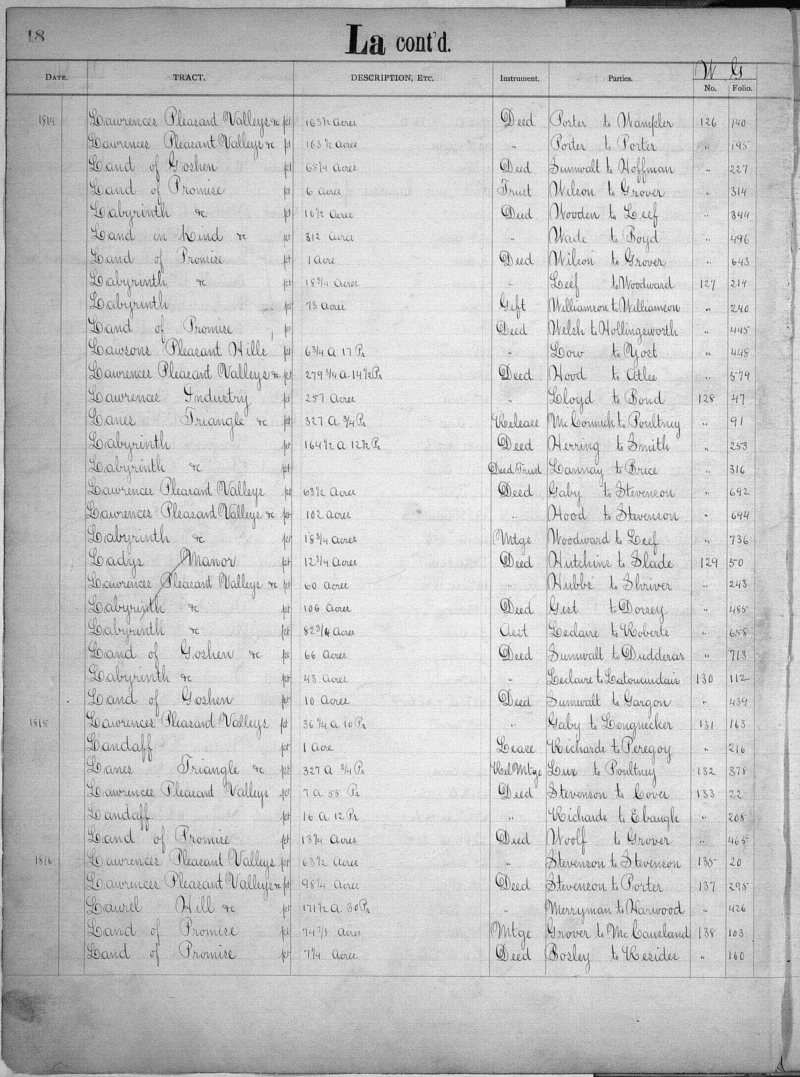 18
La cont'd.
W G
DATE. TRACT. DESCRIPTION, ETC. Instrument. Parties. No. Folio.
1814 Lawrences Pleasant Valleys &c pt 163 1/2 Acres Deed Porter to Wampler 126 140
Lawrences Pleasant Valleys &c pt 163 1/2 Acres " Porter to Porter " 195
Land of Goshen pt 65 1/4 Acres Deed Sumwalt to Hoffman " 227
Land of Promise pt 6 Acres Trust Wilson to Grover " 314
Labyrinth &c pt 16 1/2 Acres Deed Wooden to Leef " 344
Land in Kind &c pt 312 Acres " Wade to Boyd " 496
Land of Promise pt 1 Acre Deed Wilson to Grover " 643
Labyrinth &c pt 18 3/4 Acres " Leef to Woodward 127 214
Labyrinth pt 73 Acres Gift Williamson to Williamson " 240
Land of Promise pt Deed Welsh to Hollingsworth " 445
Lawsons Pleasant Hills pt 6 3/4 A 17 Ps " Low to Yost " 448
Lawrences Pleasant Valleys &c pt 279 3/4 A. 14 1/2 Ps Deed Hood to Atlee " 579
Lawrences Industry pt 257 Acres " Lloyd to Bond 128 47
Lanes Triangle &c pt 327 A 3/4 Ps Release McCormick to Poultney " 91
Labyrinth pt 164 1/2 A 12 1/2 Ps Deed Herring to Smith " 253
Labyrinth &c pt Deed Trust Lannay to Brice " 316
Lawrences Pleasant Valleys pt 63 1/2 Acres Deed Gaby to Stevenson " 692
Lawrences Pleasant Valleys &c pt 102 Acres " Hood to Stevenson " 694
Labyrinth &c pt 18 3/4 Acres Mtge Woodward to Leef " 736
Ladys Manor pt 12 3/4 Acres Deed Hutchins to Slade 129 50
Lawrences Pleasant Valleys &c pt 60 Acres " Hubbs to Shriver " 243
Labyrinth &c pt 106 Acres Deed Gist to Dorsey " 485
Labyrinth &c pt 82 3/4 Acres Asst Leclaire to Roberts " 658
Land of Goshen &c pt 66 Acres Deed Sumwalt to Dudderar " 713
Labyrinth &c pt 43 Acres " Leclaire to Latouandair 130 112
Land of Goshen pt 10 Acres Deed Sumwalt to Gargon " 439
1815 Lawrences Pleasant Valleys pt 36 1/4 A 10 Ps " Gaby to Longnecker 131 163
Landaff pt 1 Acre Lease Richards to Peregoy " 216
Lanes Triangle &c pt 327 A 3/4 Ps Rel Mtge Lux to Poultney 132 378
Lawrences Pleasant Valleys pt 7 A 55 Ps Deed Stevenson to Cover 133 22
Landaff pt 16 A 12 Ps " Richards to Ebaugh " 208
Land of Promise pt 13 3/4 Acres Deed Woolf to Grover " 465
1816 Lawrences Pleasant Valleys pt 63 1/2 Acres " Stevenson to Stevenson 135 20
Lawrences Pleasant Valleys &c pt 98 1/4 Acres Deed Stevenson to Porter 137 295
Laurel Hill &c pt 171 1/2 A 30 Ps " Merryman to Harwood " 426
Land of Promise pt 74 7/8 Acres Mtge Grover to McCausland 138 103
Land of Promise pt 7 1/4 Acres Deed Bosley to Resider " 160